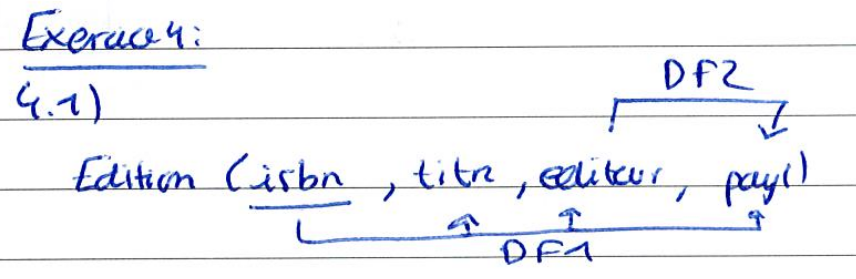 Exercice 4:
4.1)
DF2
Edition (isbn, titre, editeur, pays)
DF1